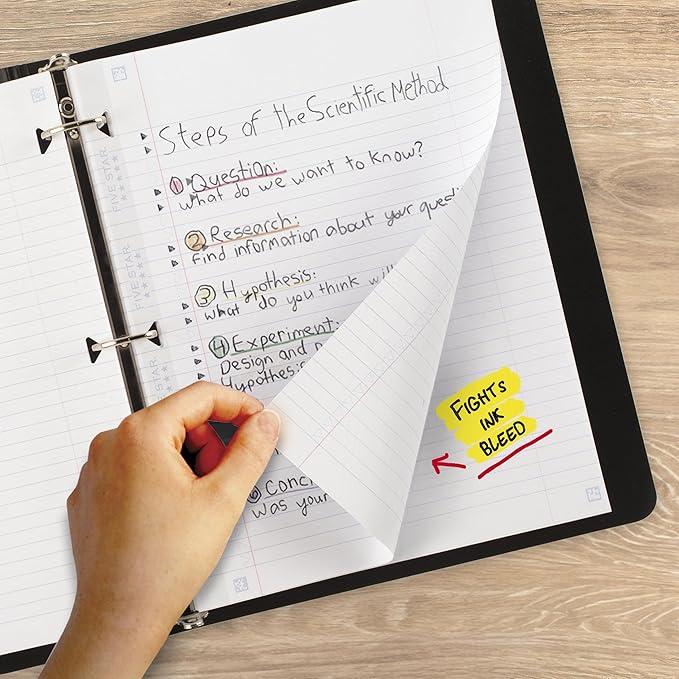 Steps of the Scientific Method
① Question:
what do we want to know?
② Research:
find information about your
③ Hypothesis:
what do you think
④ Experiment:
Design and
Hypothesis
⑥
was your
FIGHTS
INK
BLEED
FIVE STAR
FIVE STAR
FIVE STAR